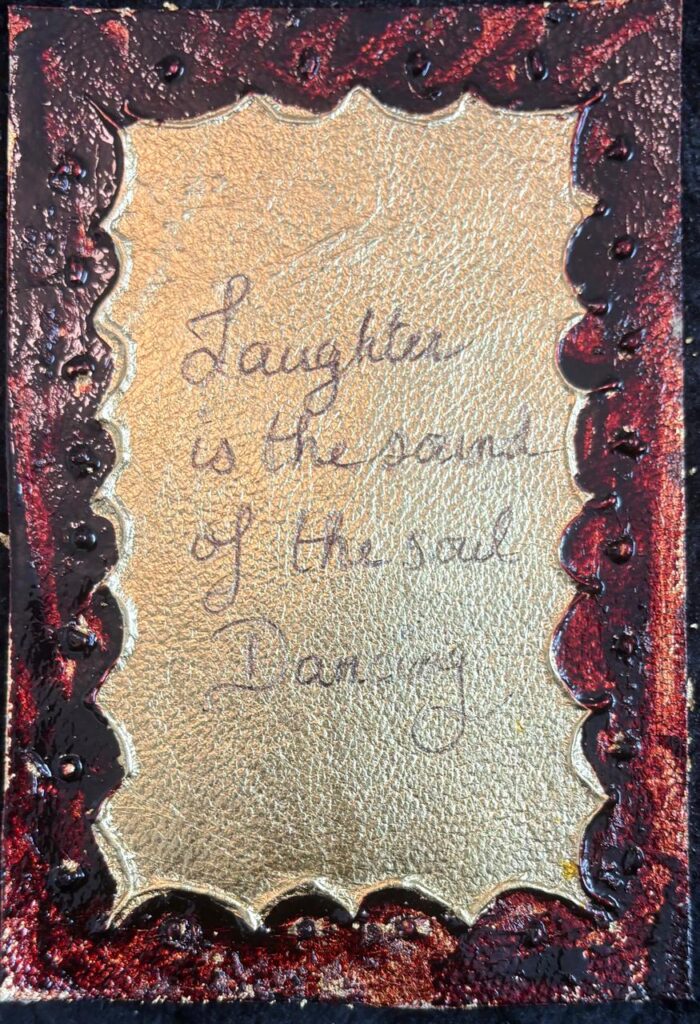 Laughter
is the sound
of the soul
Dancing